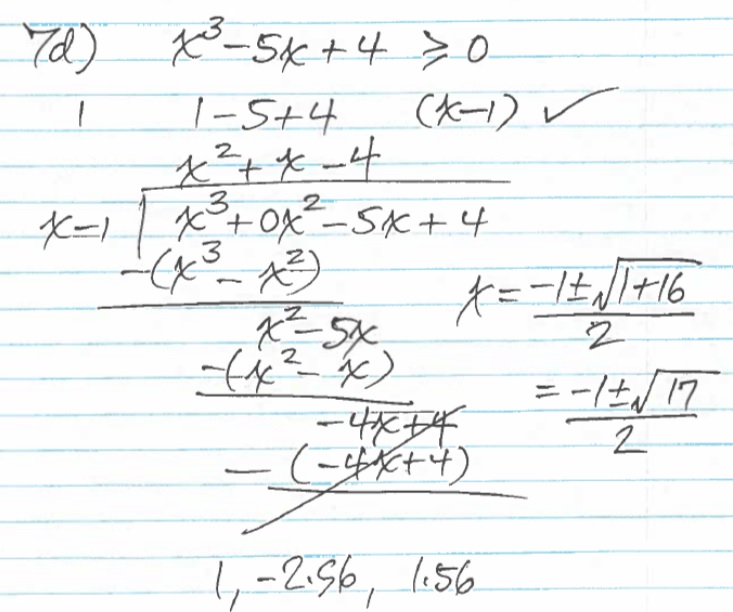 7d) x³-5x+4 ≥ 0
1 1-5+4 (x-1) ✓
x²+x-4
x=1 x³+0x²-5x+4
-(x³-x²)
x²-5x
-(x²-x)
-4x+4
-(-4x+4)
x = (-1±√(1+16))/2
= (-1±√17)/2
1, -2.56, 1.56